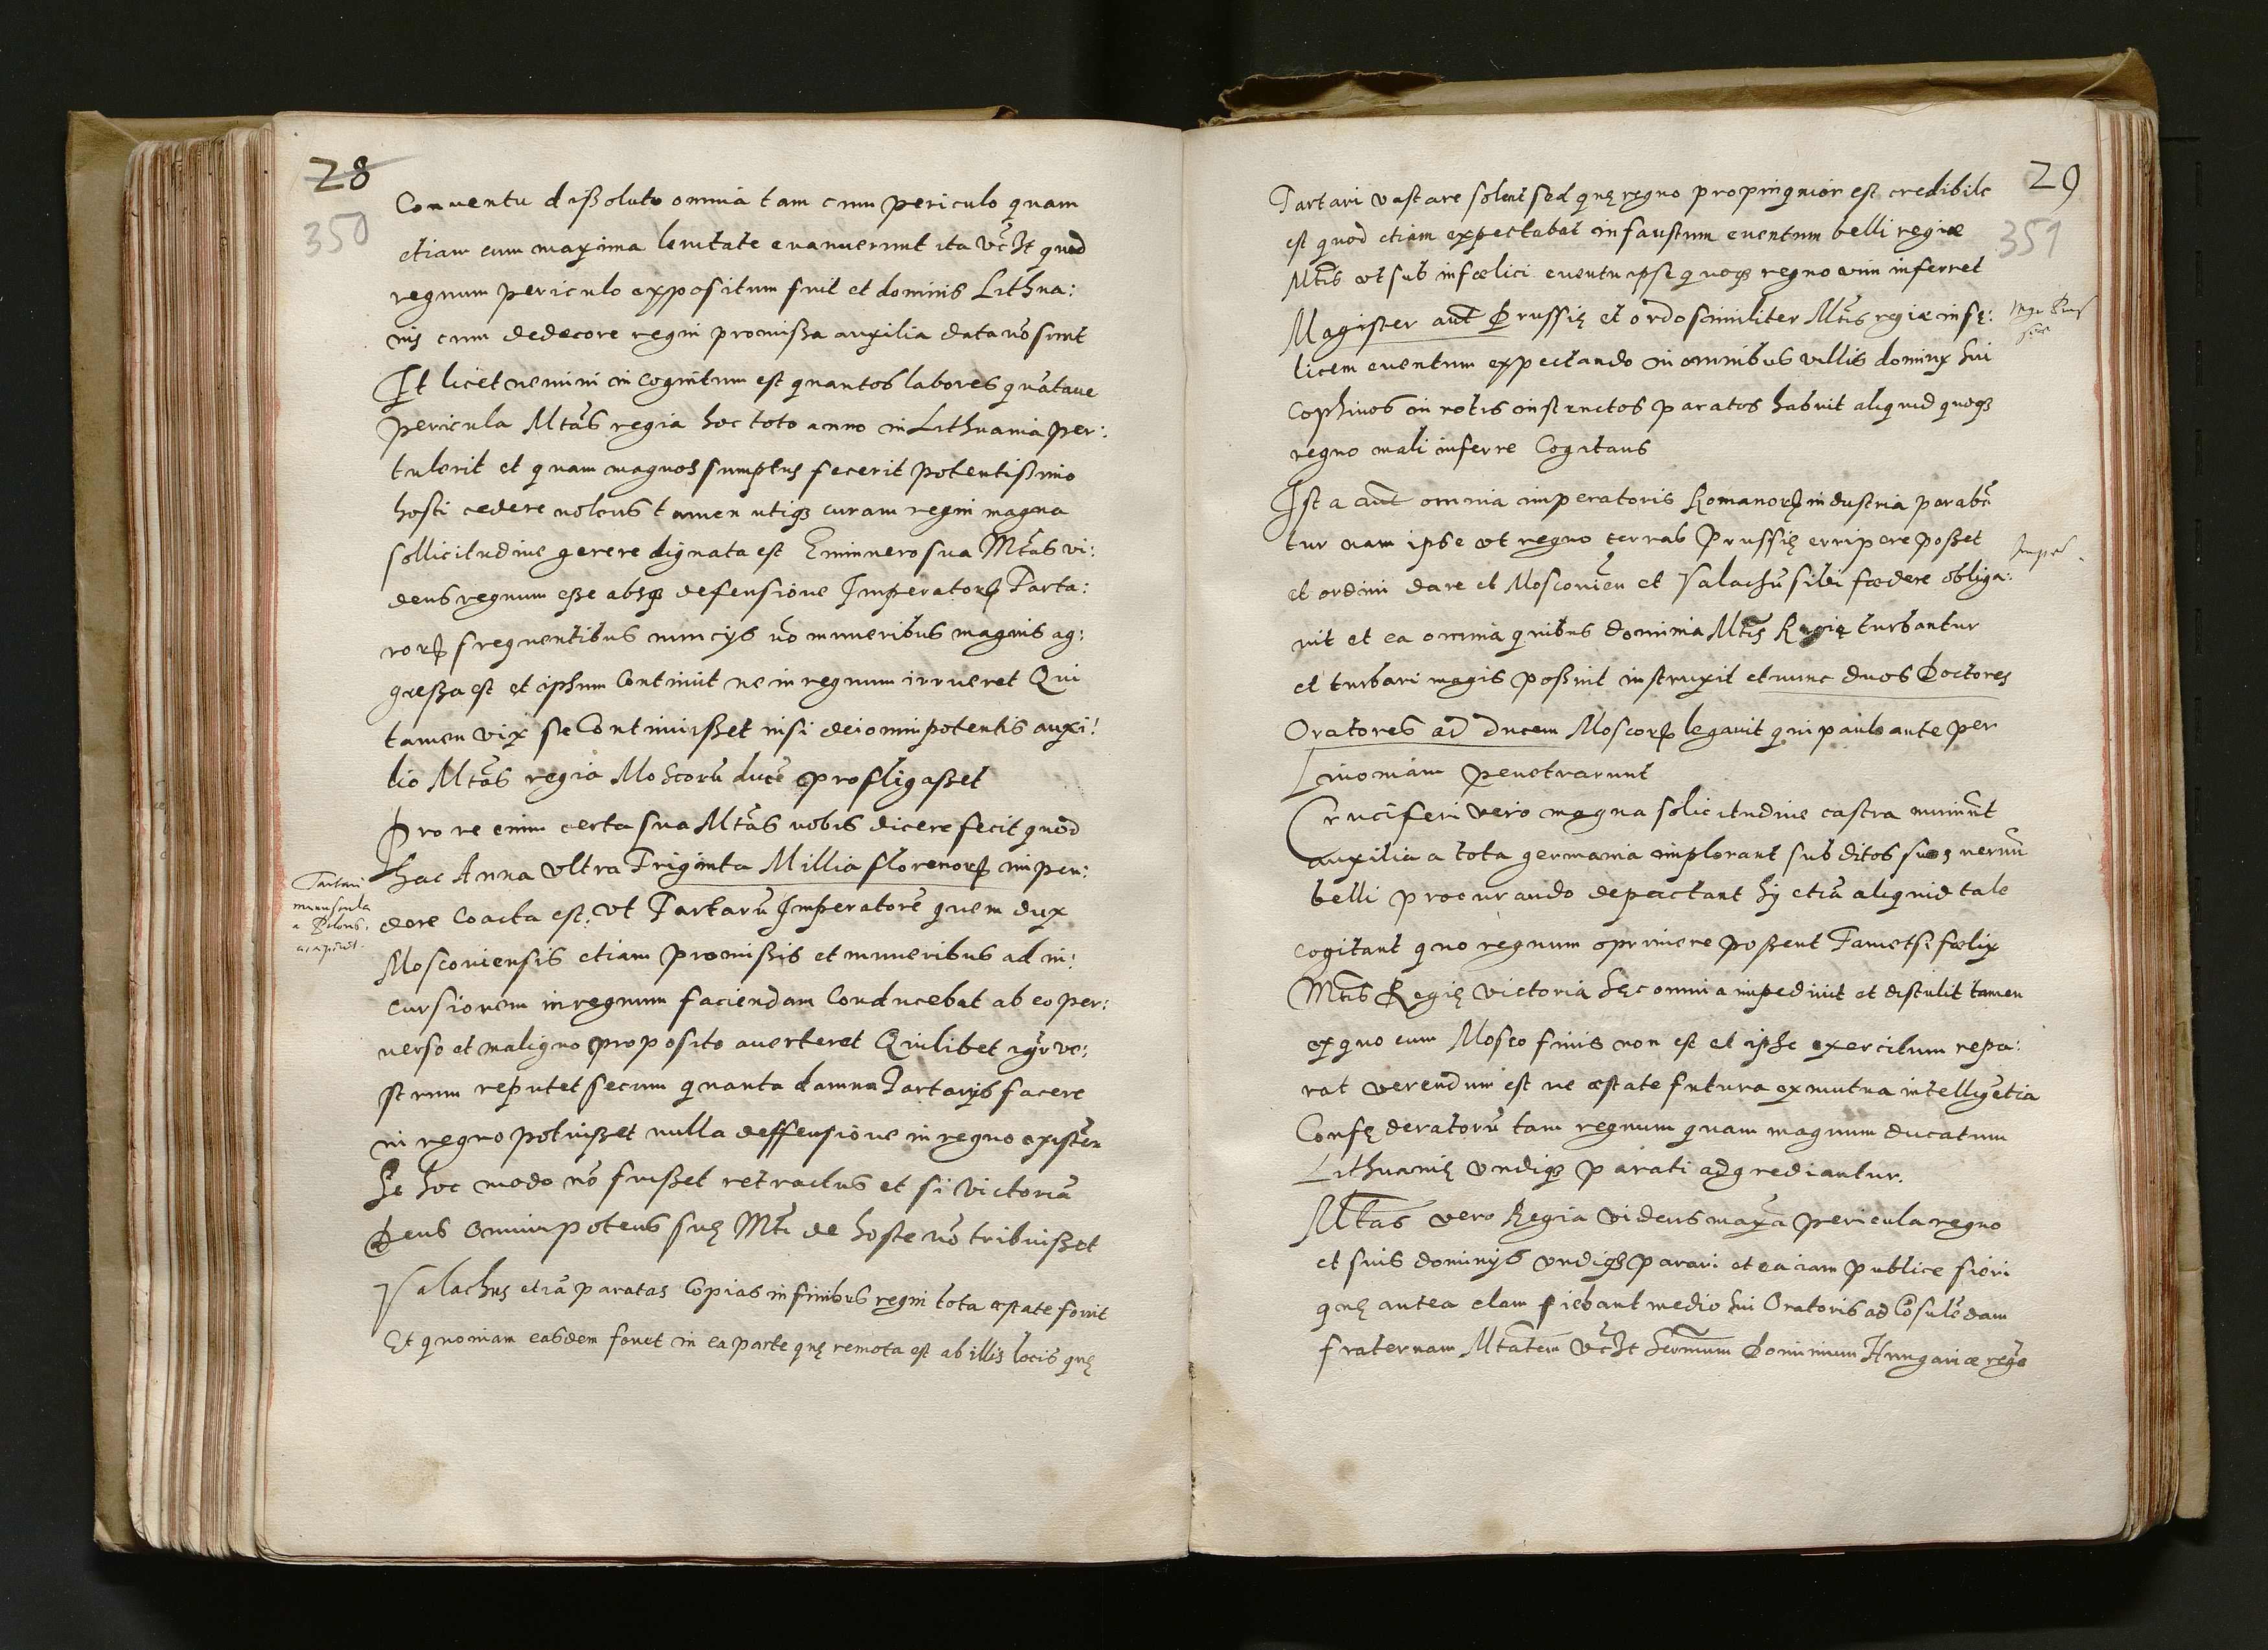 28
350
Conuentu dißoluto omnia tam cum periculo quam
etiam cum maxima leuitate euanuerunt ita vt quod
regnum periculo expositum fuit et dominis Lithua:
nis cum dedecore regni promißa auxilia data nõ sunt
Et licet nemini incognitum est quantos labores quãtaue
pericula Mtãs regia hoc toto anno in Lithuania per:
tulerit et quam magnos sumptus fecerit potentißimo
hosti cedere nolens tamen utiqꝫ curam regni magna
sollicitudine gerere dignata est Enimuero sua Mtãs vi:
dens regnum eße absqꝫ defensione Imperatorꝫ Tarta:
rorꝫ frequentibus nuncijs nõ muneribus magnis ag:
greßa est et ipsum Continuit ne in regnum irrueret Qui
tamen vix se Continuißet nisi dei omnipotentis auxi:
lio Mtãs regia Moscorũ ducẽ profligaßet
Pro re enim certa sua Mtãs vobis dicere fecit quod
hac Anna vltra Triginta Millia florenorꝫ impen:
dere Coacta est: vt Tartarũ Imperatorẽ quem dux
Moscouiensis etiam promißis et muneribus ad in:
cursionem in regnum faciendam Conducebat ab eo per:
uerso et maligno proposito auerteret Quilibet igr̃ ve:
strum reputet secum quanta damna Tartaris facere
in regno potuißet nulla deffensione in regno existẽn
Se hoc modo nõ fuißet retractus et si victoriã
Deus Omnipotens suę Mtĩ de hoste nõ tribuißet
Valachus etiã paratas Copias in finibus regni tota æstate fouit
Et quoniam easdem fouet in ea parte quę remota est ab illis locis quę
Tartari
munuscula
a Polonis
29
351
Tartari vastare solent sed quę regno propinquior est credibile
est quod etiam expectabat infaustum euentum belli regiæ
Mtĩs vt sub infœlici euentu ipse quoqꝫ regno vim inferret
Magister aut̃ Prussię et ordo similiter Mtĩs regiæ infę:
licem euentum expectando in omnibus villis dominij sui
Cophinos in rotis instructos paratos habuit aliquid quoqꝫ
regno mali inferre Cogitans
Ista aut̃ omnia imperatoris Romanorꝫ industria parabã
tur nam ipse vt regno terras Prussię erripere poßet
et ordini dare et Moscouiẽn et Valachũ sibi fœdere obliga:
uit et ea omnia quibus dominia Mtĩs Regię turbantur
et turbari magis poßint instruxit et nunc duos Doctores
Oratores ad Ducem Moscorꝫ legauit qui paulo ante per
Liuoniam penetrarunt
Cruciferi vero magna solicitudine castra muniũt
auxilia a tota germania implorant subditos suos neruũ
belli procurando depactant hij etiã aliquid tale
cogitant quo regnum oprimere poßent Tametsi fœlix
Mtĩs Regię victoria hęc omnia impediuit et distulit tamen
ex quo cum Mosco finis non est et ipse exercitum repa:
rat verendum est ne æstate futura ex mutua intelligẽtia
Confęderatorũ tam regnum quam magnum ducatum
Lithuanię vndiqꝫ parati adgrediantur.
Mtãs vero Regia videns maxã pericula regno
et suis dominijs vndiqꝫ parari et ea iam publice fieri
quę antea clam fiebant medio sui Oratoris ad Cõsulẽdam
fraternam Mtãtem vt Serm̃um Dominum Hungariæ regẽ
Mgr Prus
siæ
Imper.